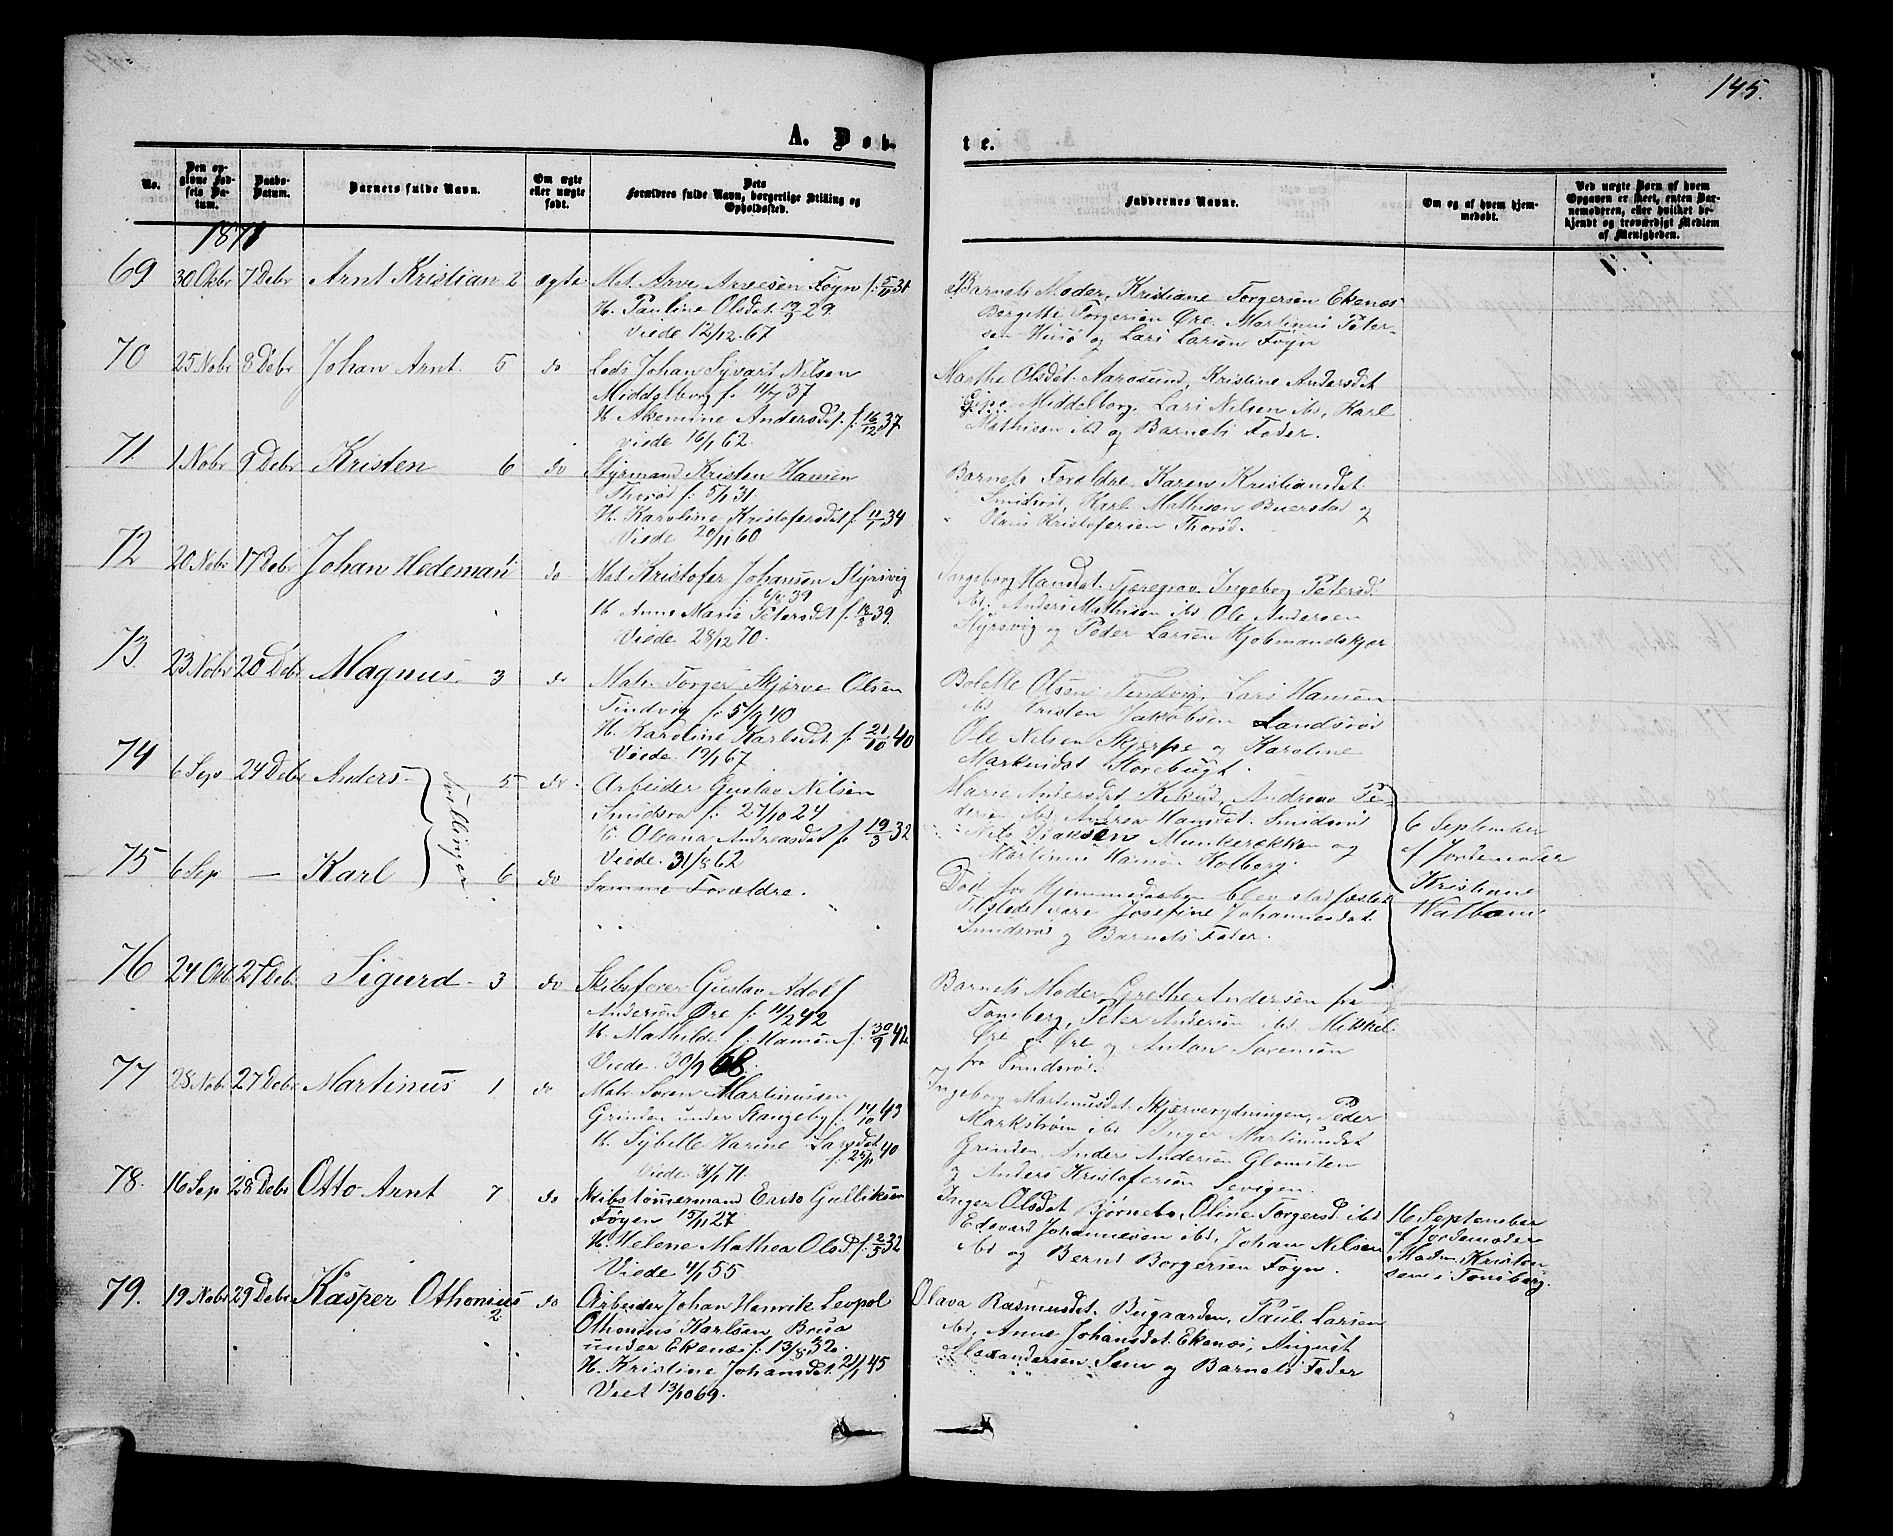 145.
A. Døb-
te.
No.
Den opgivne Fødsels Datum.
Daabs-Datum.
Barnets fulde Navn.
Om ægte eller uægte født.
Dets Forældres fulde Navn, borgerlige Stilling og Opholdssted.
Faddernes Navne.
Om og af hvem hjemmedøbt.
Ved uægte Børn af hvem Opgaven er skeet, enten Barnemoderen, eller hvilket bekjendt og troværdigt Medlem af Menigheden.
1871
69 30 Okbr 7 Debr Arnt Kristian 2 ægte
Mat. Arve Arvesen Føyn f.
H. Pauline Olsdat 29.
Viede 12/12 67
Barnets Moder, Kristiane Torgersen Ekenæs
Bergitte Torgersen Øre. Martinus Peter-
sen Husø og Lars Larsen Føyn
70 25 Nobr 8 Debr Johan Arnt. 5 do
Lods Johan Syvart Nilsen
Middelborg f. 37
H. Akemine Andersdt. f. 16/12 37
viede 16/1 62.
Marthe Olsdat. Aarøsund, Kristine Andersdt
Middelborg, Lars Nilsen ibd, Karl
Mathisen ibd og Barnets Fader.
71 1 Nobr 9 Debr Kristen 6 do
Styrmand Kristen Hansen
Thorød f. 5/1 31.
H. Karoline Kristofersdt f. 34
Viede 20/11 60
Barnets Forældre, Karen Kristiansdt.
Smidsrød, Karl Mathisen Buerstad og
Olaus Kristofersen Thorød.
72 20 Nobr 17 Debr Johan Hedeman do
Mat. Kristofer Johansen Styrsvig
f. 6/8 39
H. Anne Marie Petersdt f. 39.
Viede 28/12 70.
Ingeborg Hansdt. Tjæregrav, Ingeborg Petersd.
ibd. Anders Mathisen ibd Ole Andersen
Styrsvig og Peder Larsen Kjøbmandskjær
73. 23 Nobr 20 Debr Magnus. 3 do
Matr. Torger Skjærve Olsen
Tindvig f. 5/9 40
H. Karoline Karlsdt f. 21/10 40
Viede 67
Bolette Olsen Tindvig, Lars Hansen
ibd Kristen Jakobsen Sandsrød
Ole Nilsen Skjerpe og Karoline
Storebugt.
74 6 Sep 24 Debr Anders 5 do.
Tvillinger
Arbeider Gustav Nilsen
Smidsrø f. 27/10 24
H. Oleana Andreasdat f. 19/3 32
Viede. 31/8 62
Marie Andersdat Andreas Pe-
dersen ibd. Andrea Hansdt. Smidsrød
Nils Isaksen Munkerækken og
Martinus Hansen Kolberg.
6 September
af Jordemoder
Kristiane
75 6 Sep — Karl 6 do
Samme Forældre.
Død før Hjemmedaaben blev stadfæstet
Tilstede vare Josefine Johannesdat
Smidsrød og Barnets Fader.
76 24 Okb 27 Debr Sigurd 3 do
Skibsfører Gustav Adolf
Andersen Øre f. 11/2 42
H. Mathilde f. Hansen f. 30/9 42
Viede. 30/9 68.
Barnets Moder Grethe Andersen fra
Tønsberg, Peter Andersen ibd. Mikkel
Øre p. Øre og Anton Sørensen
fra Smidsrød.
77 28 Nobr 27 Debr Martinus 1 do
Mat. Søren Martinusen
Grinden under Stangeby f. 43
H. Sybille Karine Larsdt
Viede 71.
Ingeborg Martinusdt. Skjærerydningen, Peder
Markstrøm ibd Inger Martinusdat
Grinden, Anders Andersen Glomsten
og Anders Kristofersen
78. 16 Sep 28 Debr Otto Arnt 7 do
Skibstømmermand Gulliksen
Føyen 15/11 27
H. Helene Mathea Olsd f. 2/5 32
Viede 4/1 55
Inger Olsdat Bjørnebo, Oline Torgersd. ibd
Edevard Johannesen ibd, Johan Nilsen
ibd og Bernt Borgersen Føyn.
16 September
af Jordemoder
Madm. Kristen-
sen i Tønsberg.
79. 19 Nobr 29 Debr Kasper Othonius 2 do
Arbeider Johan Henrik Leopol
Othonius Karlsen, Brua
under Ekenæs f. 13/8 32.
H. Kristine Johansdt. 21/1 45
Viet 13/10 69.
Olava Rasmusdt. Bugaarden, Paul Larsen
ibd, Anne Johansdat. Ekenæs, August
Alexandersen Sem og Barnets Fader